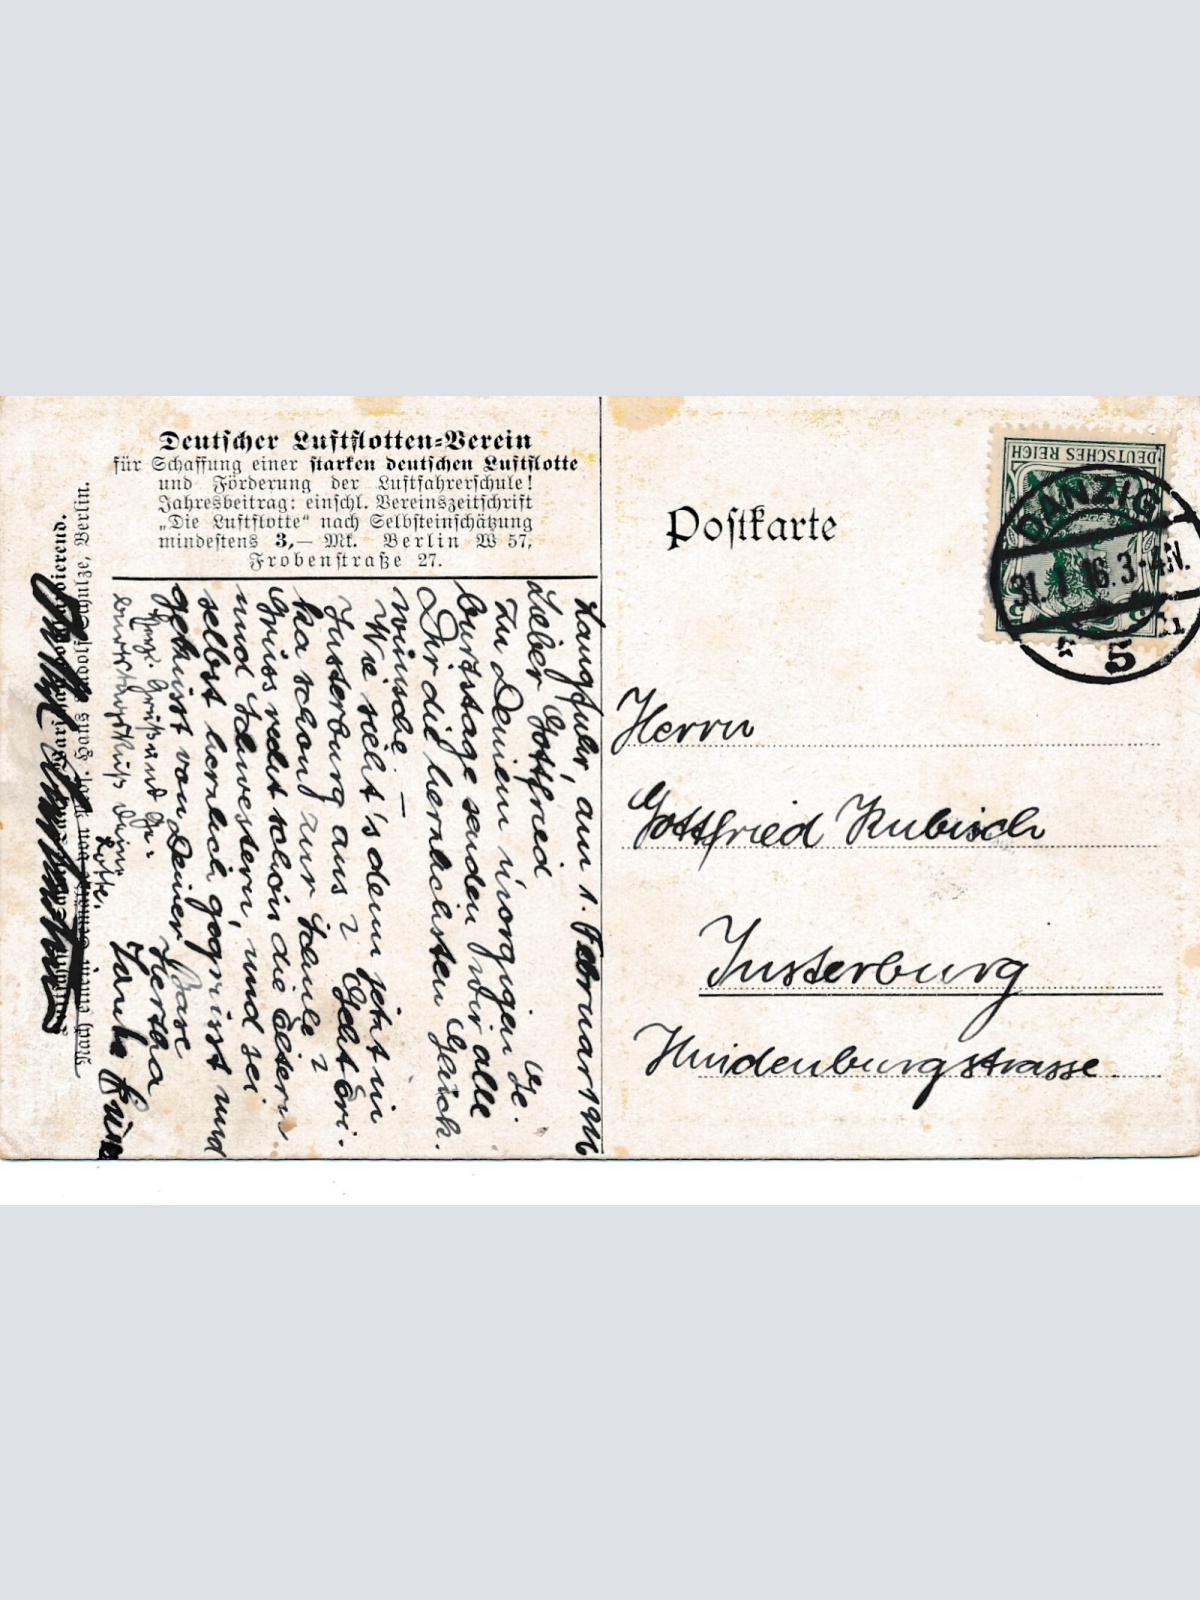 Deutscher Luftflotten-Verein
für Schaffung einer starken deutschen Luftflotte
und Förderung der Luftfahrerschule!
Jahresbeitrag: einschl. Vereinszeitschrift
„Die Luftflotte“ nach Selbsteinschätzung
mindestens 3,— Mk. Berlin W 57,
Frobenstraße 27.
Langfuhr, am 1. Februar 1916
Lieber Gottfried
Zu Deinem morgigen Ge-
burtstage senden wir alle
Dir die herzlichsten Glück-
wünsche. —
Wie sieht's denn jetzt in
Insterburg aus? Geht Eri-
ka schon zur Schule?
Grüss recht schön die Eltern
und Schwestern, und sei
selbst herzlich gegrüsst und
geküsst von Deiner Base
Hertha
Herz. Gruß und Ge-
burtstagskuß Deine
Lotte.
Tante
Nach einem Gemälde von Prof. Hans Rudolf Schulze, Berlin.
Postkarte
DEUTSCHES REICH
5
DANZIG
31.1.16. 3-4N.
* 5
Herrn
Gottfried Kubisch
Insterburg
Hindenburgstrasse.